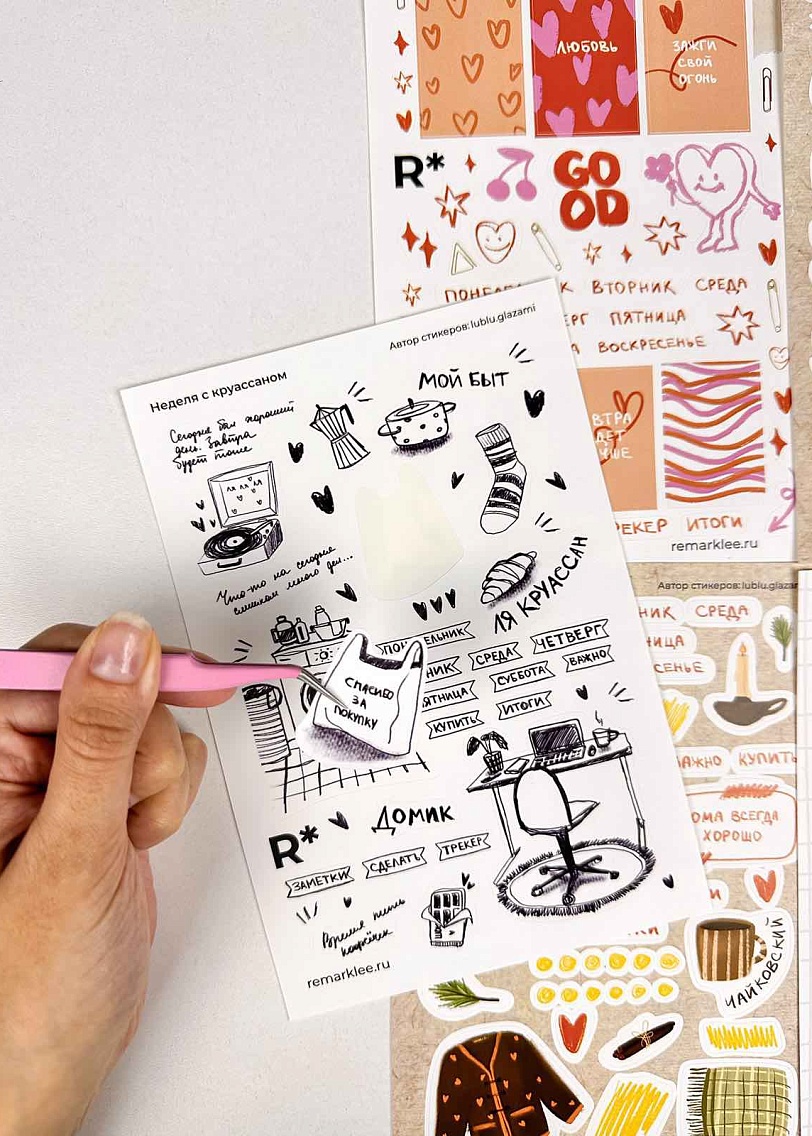 ЛЮБОВЬ
ЗАЖГИ
СВОЙ
ОГОНЬ
R*
GO
OD
ВТОРНИК СРЕДА
ПЯТНИЦА
ВОСКРЕСЕНЬЕ
ИТОГИ
remarklee.ru
Автор стикеров: lublu.glazami
Неделя с круассаном
Сегодня был хороший
день. Завтра
будет тоже
МОЙ БЫТ
ЛЯ ЛЯ ЛЯ
Что-то на сегодня
слишком много дел...
ЛЯ КРУАССАН
СРЕДА
ЧЕТВЕРГ
СУББОТА
ВАЖНО
КУПИТЬ
ИТОГИ
СПАСИБО
ЗА
ПОКУПКУ
R*
ДОМИК
ЗАМЕТКИ
СДЕЛАТЬ
ТРЕКЕР
Время пить
remarklee.ru
Автор стикеров: lublu.glaza
СРЕДА
КУПИТЬ
ОМА ВСЕГДА
ХОРОШО
ЧАЙКОВСКИЙ